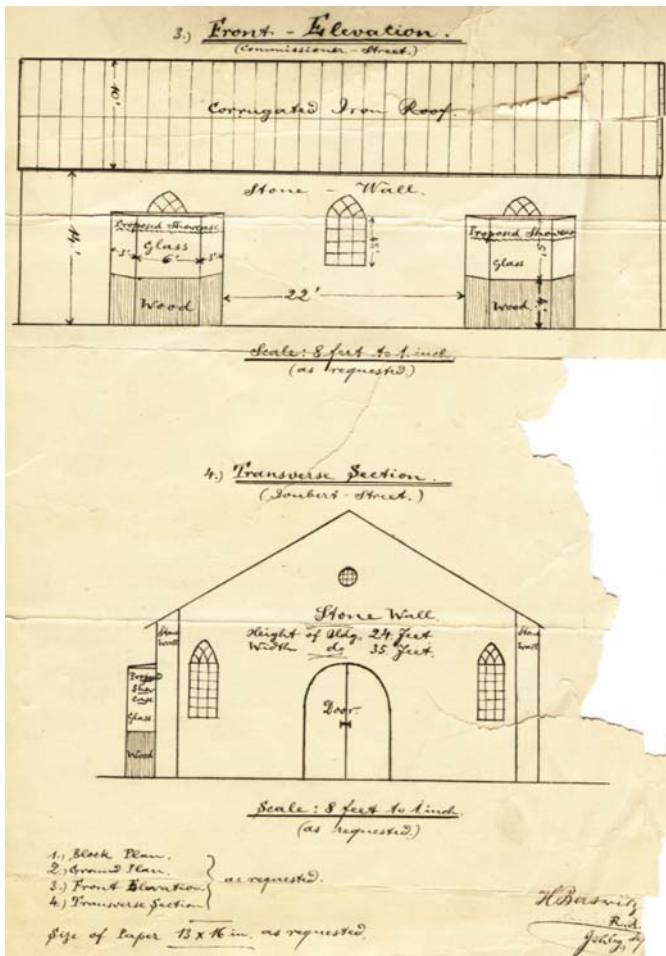 3.) Front - Elevation.
(Commissioner - Street.)
10'
Corrugated Iron Roof.
Stone - Wall.
14'
Proposed Showcase
Glass
3' 6' 3'
Wood
22'
Proposed Showcase
5'
Glass
4'
Wood
Scale: 8 feet to 1 inch.
(as requested.)
4.) Transverse Section.
(Joubert - Street.)
Stone Wall.
Height of Bldg. 24. Feet
Width do 35. Feet.
Stone
Wall
Stone
Wall
Show
Case
Glass
Wood
Door.
Scale: 8 feet to 1 inch.
(as requested.)
1.) Block Plan.
2.) Ground Plan.
3.) Front Elevation.
4.) Transverse Section
as requested.
Size of Paper 13 x 16 in. as requested.